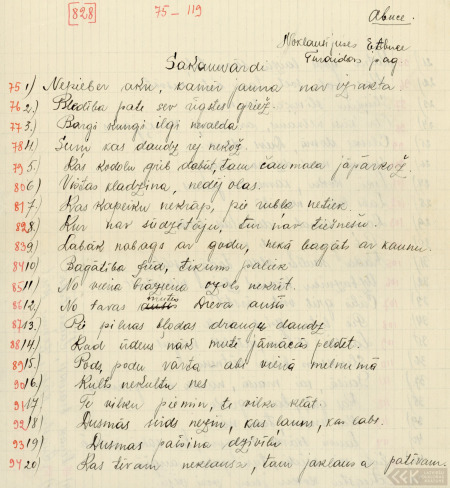 [828] 75 – 119
Abuce.
Noklausījuses E. Abuce
Turaidas pag.
Sakāmvārdi
75 1) Nepieber aku, kamēr jauna nav izrakta.
76 2.) Bledība pate sev rīgsles griež.
77 3.) Bargi kungi ilgi nevalda
78 4.) Suns kas daudz rej nekož.
79 5.) Kas kodolu grib dabūt, tam čaumala jāpārkož.
80 6.) Vistas kladzina, nedēj olas.
81 7) Kas kapeiku nekrāj, pie rubļa netiek.
82 8.) Kur nav sūdzētāju, tur nav tiesnešu.
83 9) Labāk nabags ar godu, nekā bagāts ar kaunu.
84 10) Bagātība zūd, tikums paliek
85 11) No viena cirtiena ozols nekrīt.
86 12.) No tavas mutes Dieva ausīs
87 13.) Pie pilnas bļodas draugu daudz
88 14.) Kad ūdens nāk mutē jāmācās peldēt.
89 15.) Pods podu vārša abi vienā melnumā
90 16.) Kults nekultu nes
91 17.) Te vilku piemin, te vilks klāt.
92 18) Dusmās sirds nezin, kas launs, kas labs.
93 19) Dusmas pašsina dzīvību
94 20) Kas tēvam neklausa, tam jāklausa patēvam.